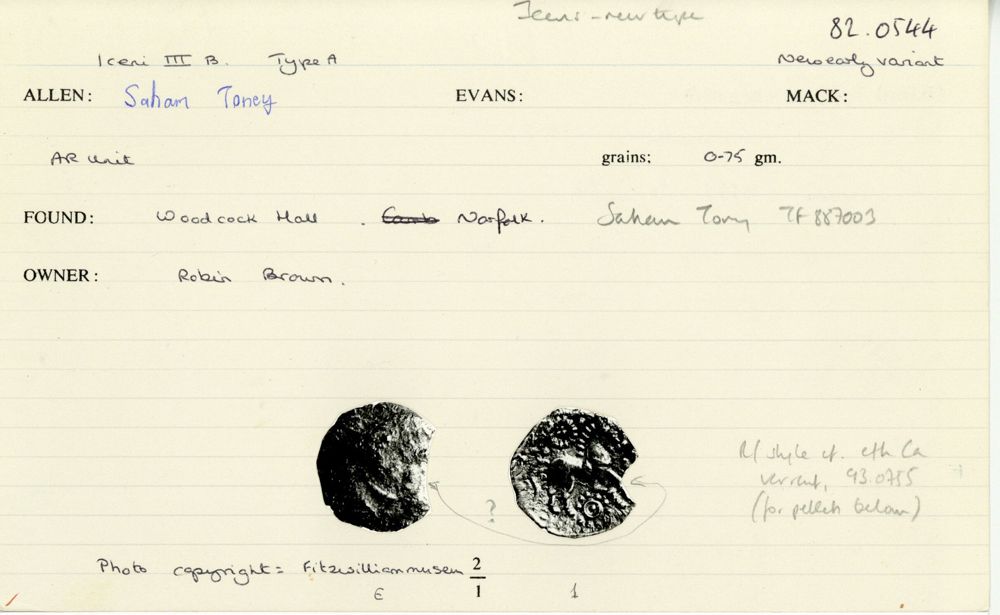 Iceni - new type
82.0544
Iceni III B. Type A
New early variant
ALLEN: Saham Toney EVANS: MACK:
AR unit grains: 0-75 gm.
FOUND: Woodcock Hall . Norfolk. Saham Tony TF 887003
OWNER: Robin Brown.
R/ style cf.
93.0755
(for pellets below)
?
Photo copyright = Fitzwilliammuseum 2/1
E 1